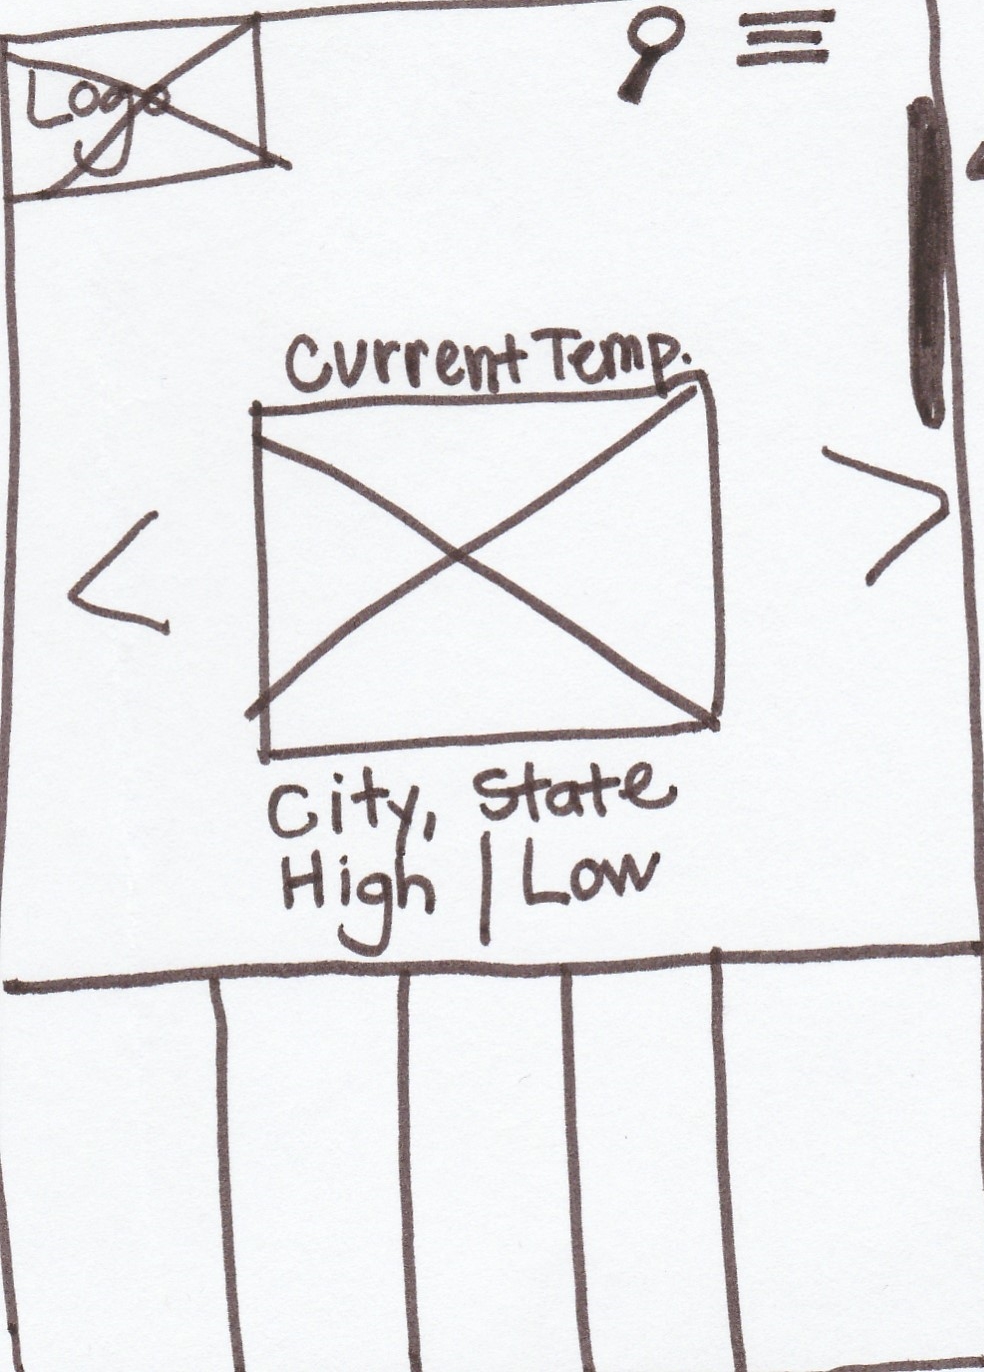 Logo
Current Temp.
City, State
High | Low